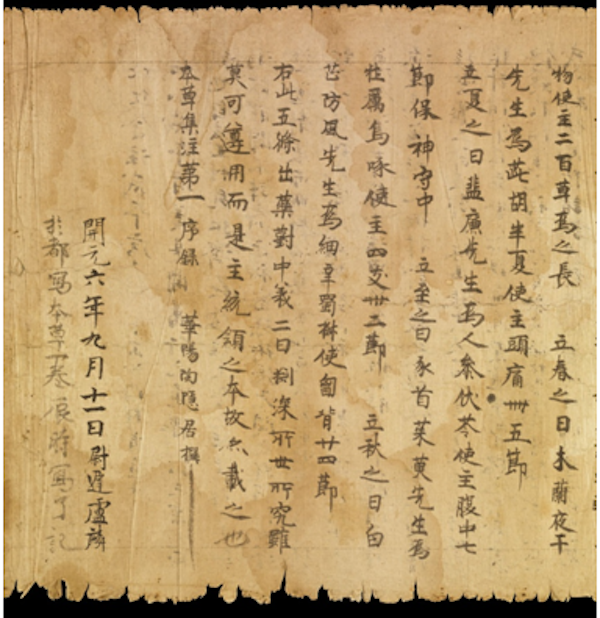 物使主二百草為之長　立春之日木蘭夜干
先生為茈胡半夏使主頭痛卌五節
立夏之日蜚廉先生為人參伏苓使主腹中七
節保神守中　立至之日豕首茱萸先生為
牡厲烏喙使主四支卅二節　立秋之日白
芷防風先生為細辛蜀椒使匈背廿四節
右此五條出藥對中義二曰捌深所世所究雖
莫可遵用而是主統領之本故亦載之也
本草集注第一序錄　華陽陶隱居撰
開元六年九月十一日尉遲盧麟
於都寫本草一卷　寫了記